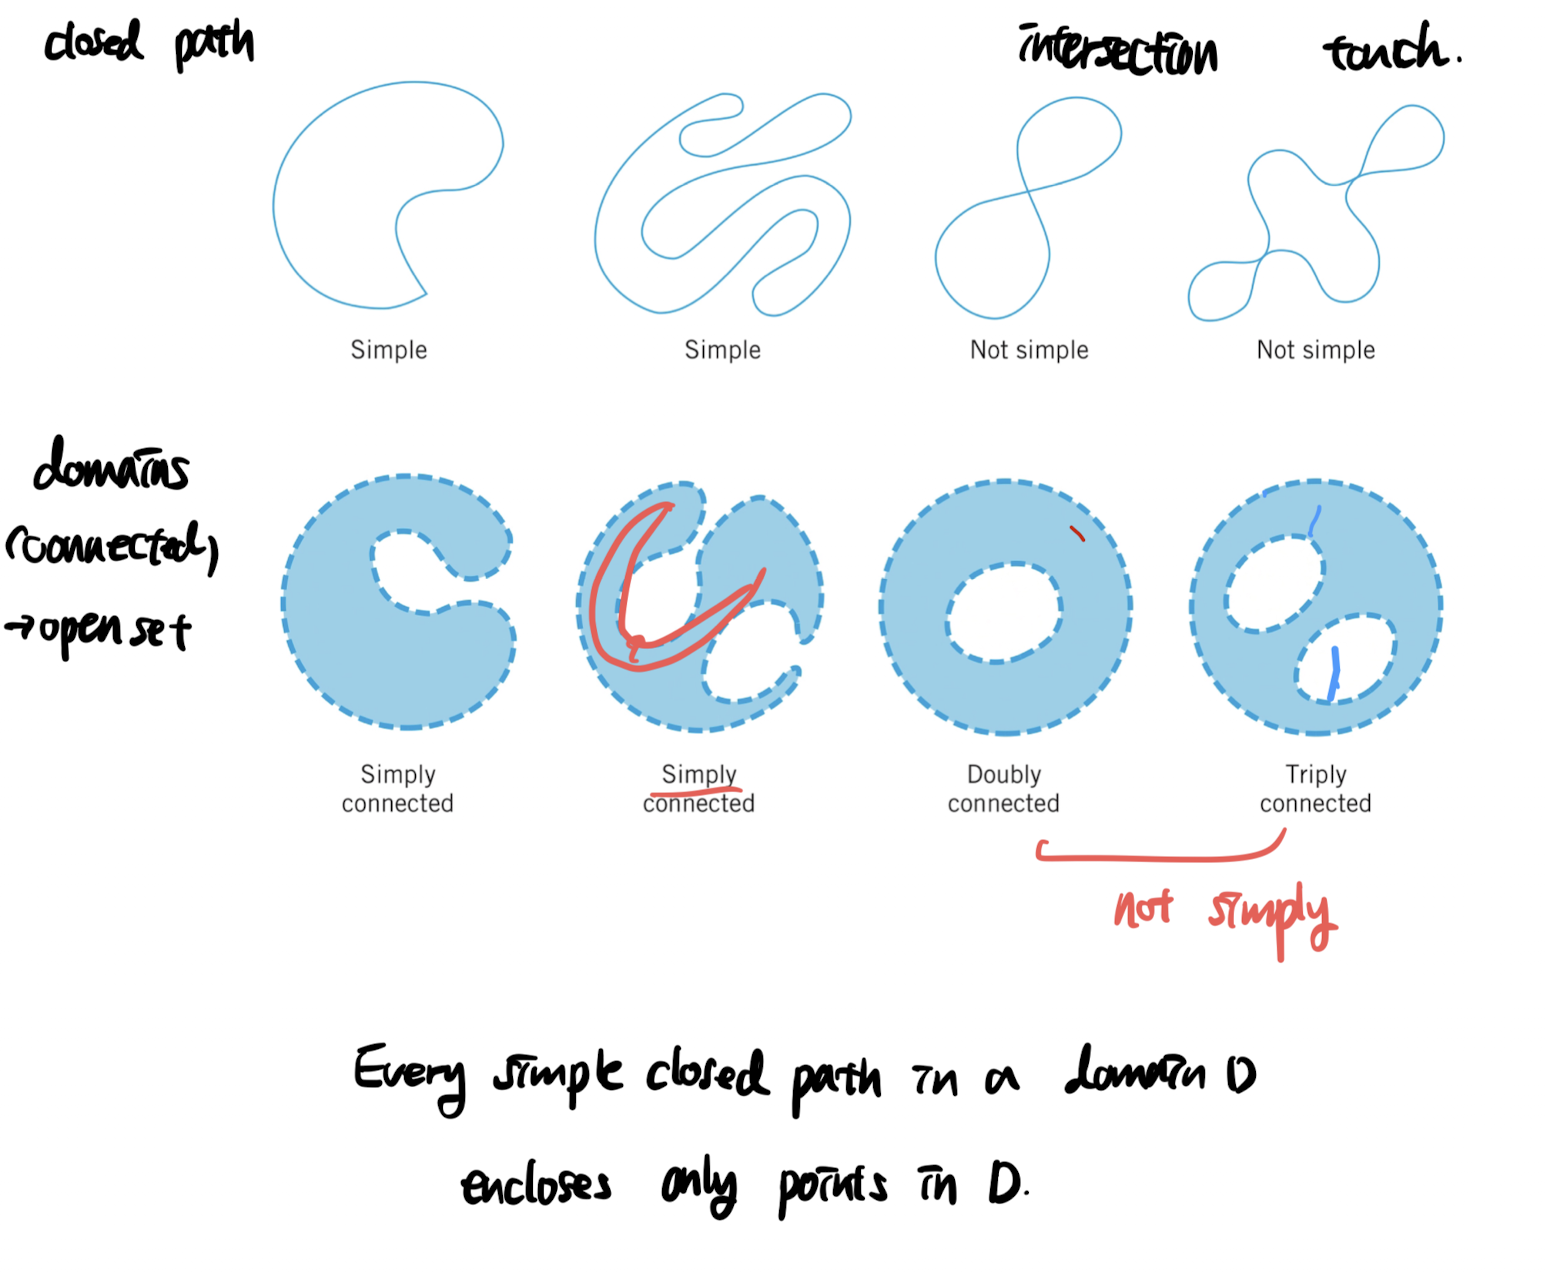 closed path
intersection touch.
Simple Simple Not simple Not simple
domains
(connected)
→ open set
Simply connected
Simply connected
Doubly connected
Triply connected
not simply
Every simple closed path in a domain D
encloses only points in D.